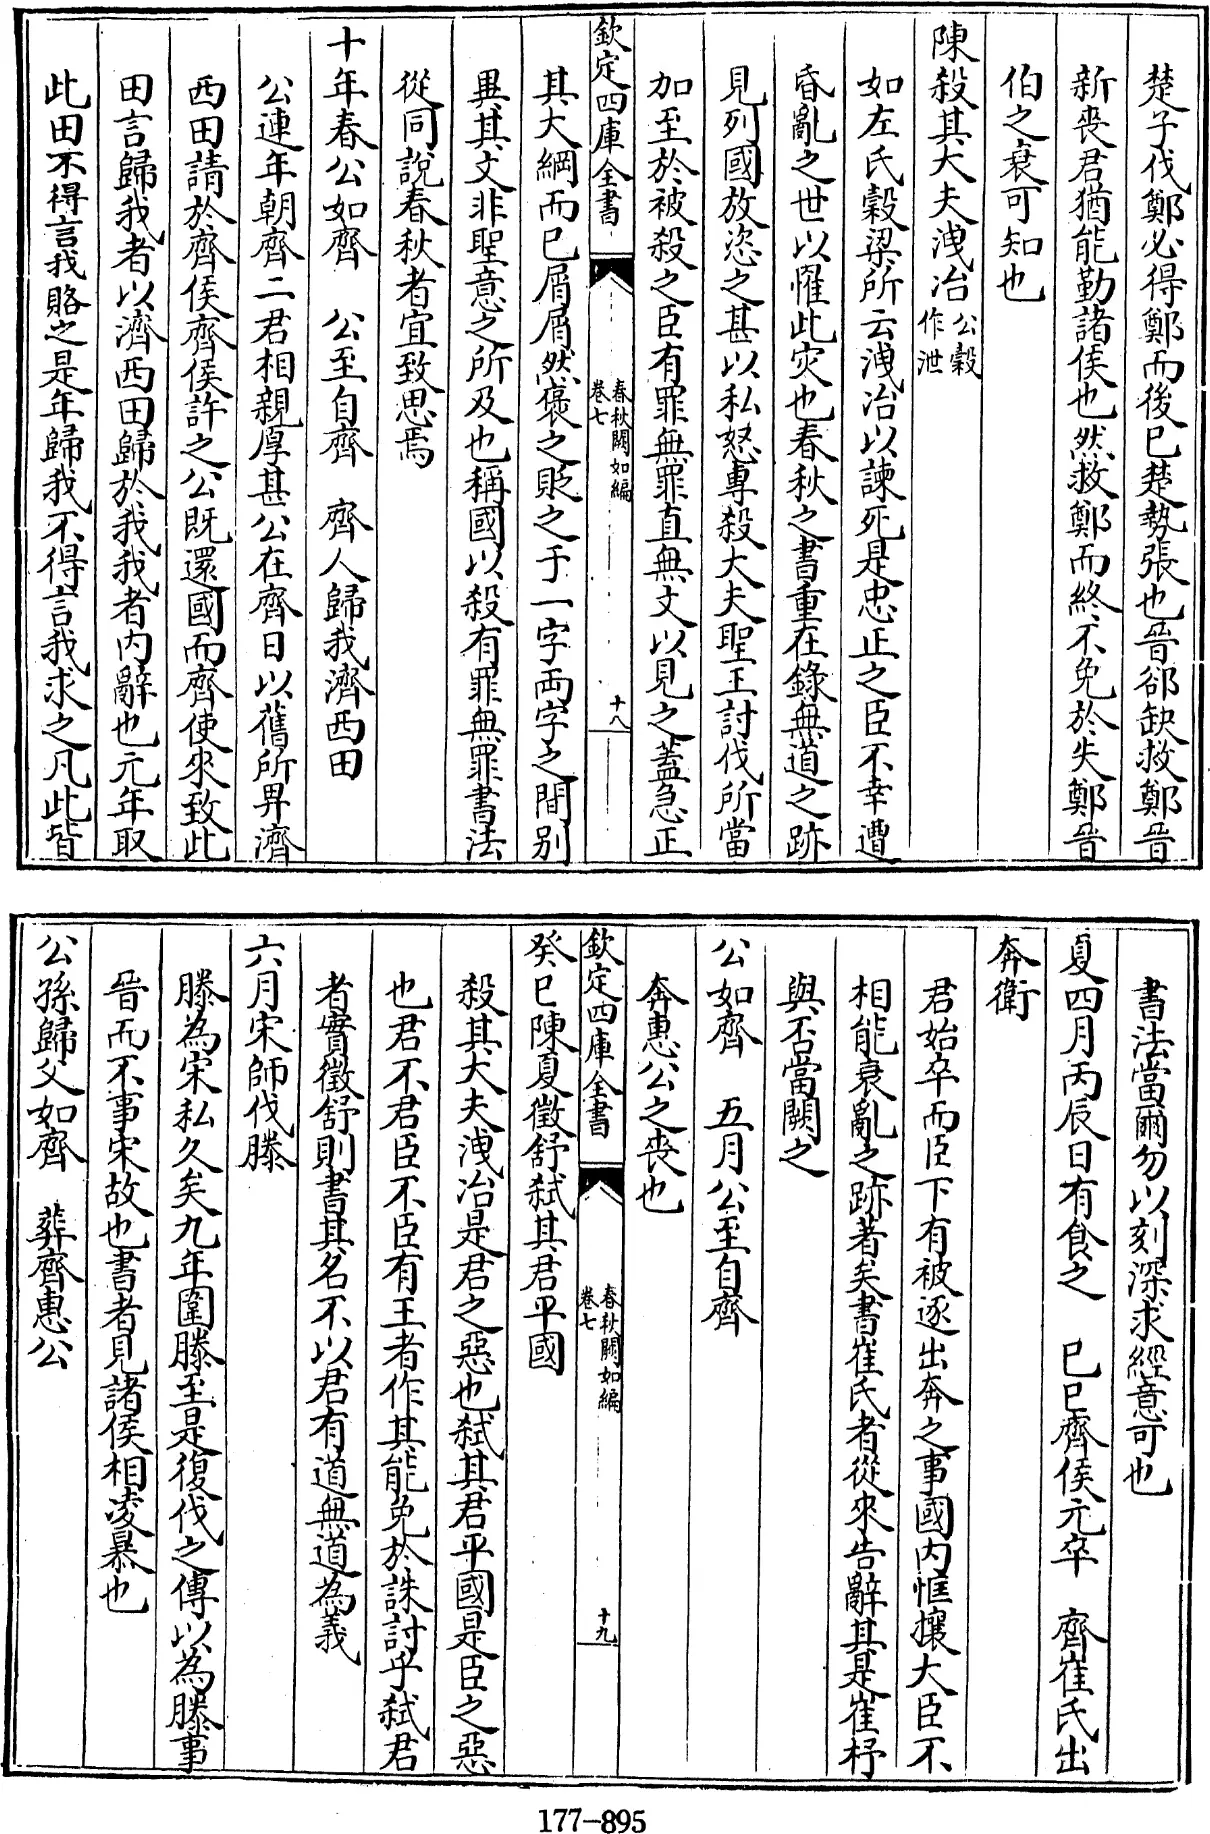 楚子伐鄭必得鄭而後已楚勢張也晉郤缺救鄭晉
新喪君猶能勤諸侯也然救鄭而終不免於失鄭晉
伯之衰可知也
陳殺其大夫洩冶公穀作泄
如左氏穀梁所云洩冶以諫死是忠正之臣不幸遭
昏亂之世以罹此灾也春秋之書重在錄無道之跡
見列國放恣之甚以私怒專殺大夫聖王討伐所當
加至於被殺之臣有罪無罪直無文以見之蓋急正
欽定四庫全書
春秋闕如編
卷七
十八
其大綱而已屑屑然襃之貶之于一字兩字之間别
異其文非聖意之所及也稱國以殺有罪無罪書法
從同說春秋者宜致思焉
十年春公如齊 公至自齊 齊人歸我濟西田
公連年朝齊二君相親厚甚公在齊日以舊所畀濟
西田請於齊侯齊侯許之公既還國而齊使來致此
田言歸我者以濟西田歸於我我者内辭也元年取
此田不得言我賂之是年歸我不得言我求之凡此皆
書法當爾勿以刻深求經意可也
夏四月丙辰日有食之 己巳齊侯元卒 齊崔氏出
奔衛
君始卒而臣下有被逐出奔之事國内恇攘大臣不
相能衰亂之跡著矣書崔氏者從來告辭其是崔杼
與否當闕之
公如齊 五月公至自齊
奔惠公之喪也
欽定四庫全書
春秋闕如編
卷七
十九
癸巳陳夏徵舒弑其君平國
殺其大夫洩冶是君之惡也弑其君平國是臣之惡
也君不君臣不臣有王者作其能免於誅討乎弑君
者實徵舒則書其名不以君有道無道為義
六月宋師伐滕
滕為宋私久矣九年圍滕至是復伐之傳以為滕事
晉而不事宋故也書者見諸侯相凌暴也
公孫歸父如齊 葬齊惠公
177-895